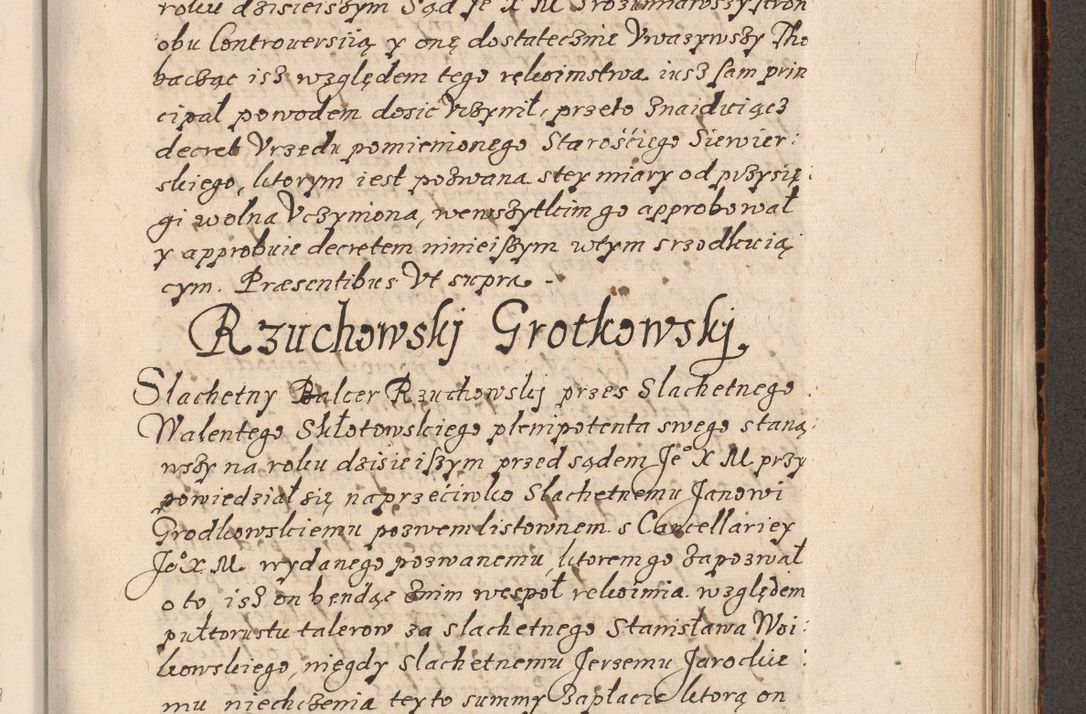 roku dzisieiszym Sąd Je X M zrozumiawszy stron
obu Controuersiią y onę dostatecznie Vwazywszy Tho
baczac isz względem tego rekoimstwa iusz sam prin
cipał powodem dosic Vczynił, przeto znaiduiącz
decret Vrzedu pomienionego Starośćiego Siewier:
skiego, ktorym iest pozwana stey miary od przysię:
gi wolna Vczyniona, wewszytkim go approbował
y approbuie decretem ninieiszym wtym srzodkuią
cym. Præsentibus Vt supra.
Rzuchowskj Grotkowskj
Slachetny Balcer Rzuchowskj przes Slachetnego
Walentego Skłotowskiego plenipotenta swego staną:
wszy na roku dzisieiszym przed sądem Jeº X M przy
powiedział się naprzećiwko Slachetnemu Janowi
Grodkowskiemu pozwem listownem s Cancellariey
Jeº X M wydanego pozwanemu, ktorem go zapozwał
o to, isz on bendąc znim wespoł rekoimia względem
pułtorustu talerow za slachetnego Stanisława Woi:
kowskiego, niegdy slachetnemu Jerzemu Jarockie:
mu niechczenia tey to summy Zapłacic ktorą on